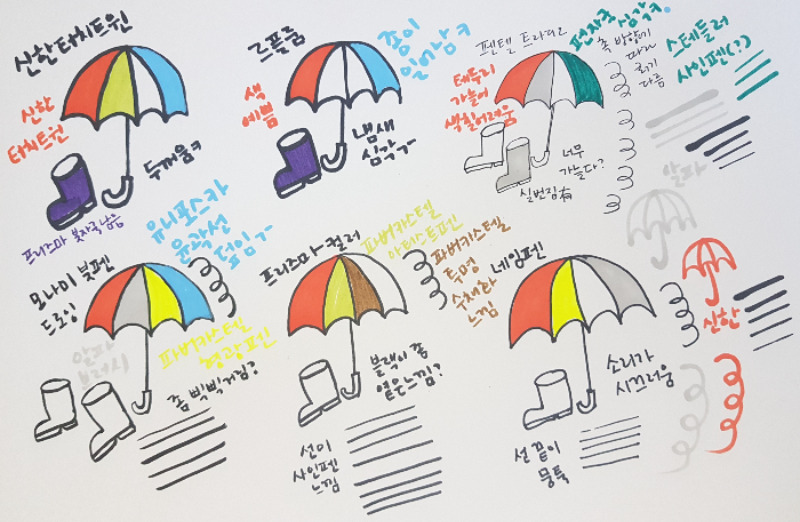 신한터치트윈
신한
터치트윈
두꺼움ㅋ
프리즈마 붓자국남음
ZF플풀
색
예쁨
종이
일어남ㅋ
냄새
심각ㄱ
펜텔 트라디오
테두리
가늘어
색칠어려움
펀자국
심각ㅋ
촉 방향에
따라
굵기
다름
스테들러
사인펜(?)
너무
가늘다?
실번짐有
유니포스카
윤곽선
덮임ㄱ
모나미 붓펜
드로잉
알파
브러시
파버카스텔
형광펜
좀 삑삑거림?
프리즈마 컬러
파버카스텔
아티스트펜
파버카스텔
투명
수채화
느낌
블랙이 좀
옅은느낌?
선이
사인펜
느낌
네임펜
소리가
시끄러움
선 끝이
뭉툭
알파
신한